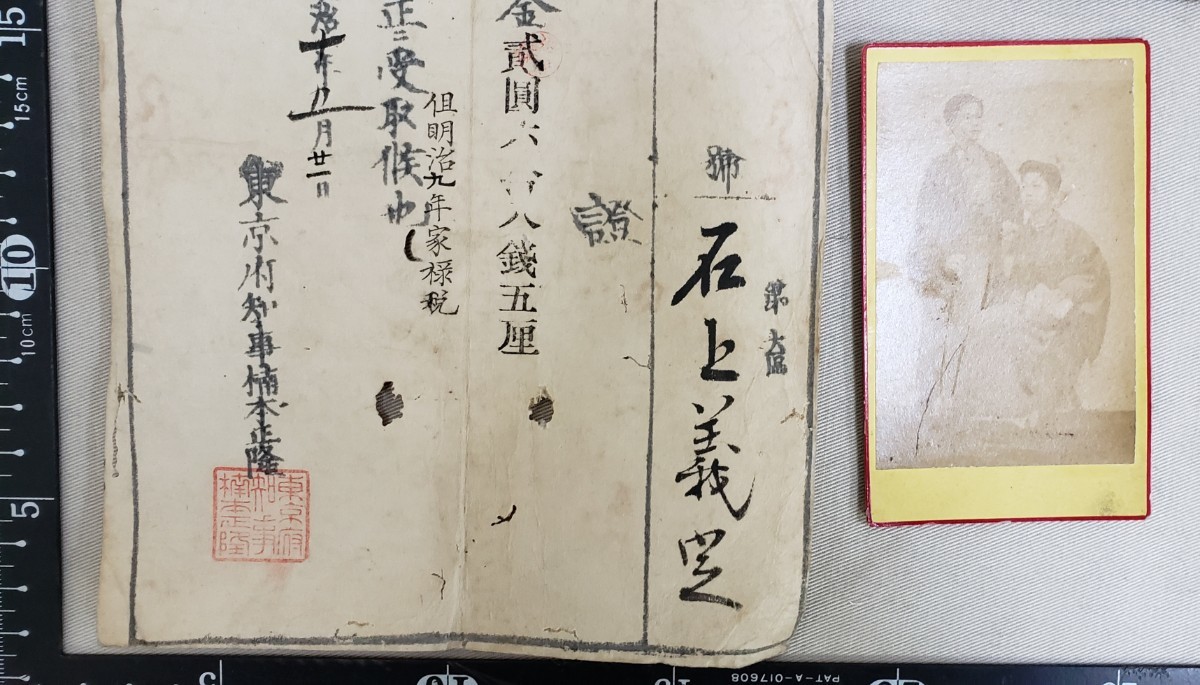 第大區
號
石上義㔟
證
金貳圓六拾八錢五厘
但明治九年家禄税
正ニ受取候也
治十年 月廿一日
東京府知事楠本正隆
東京府知事楠本正隆
15
15cm
10
10cm
5
PAT-A-017608